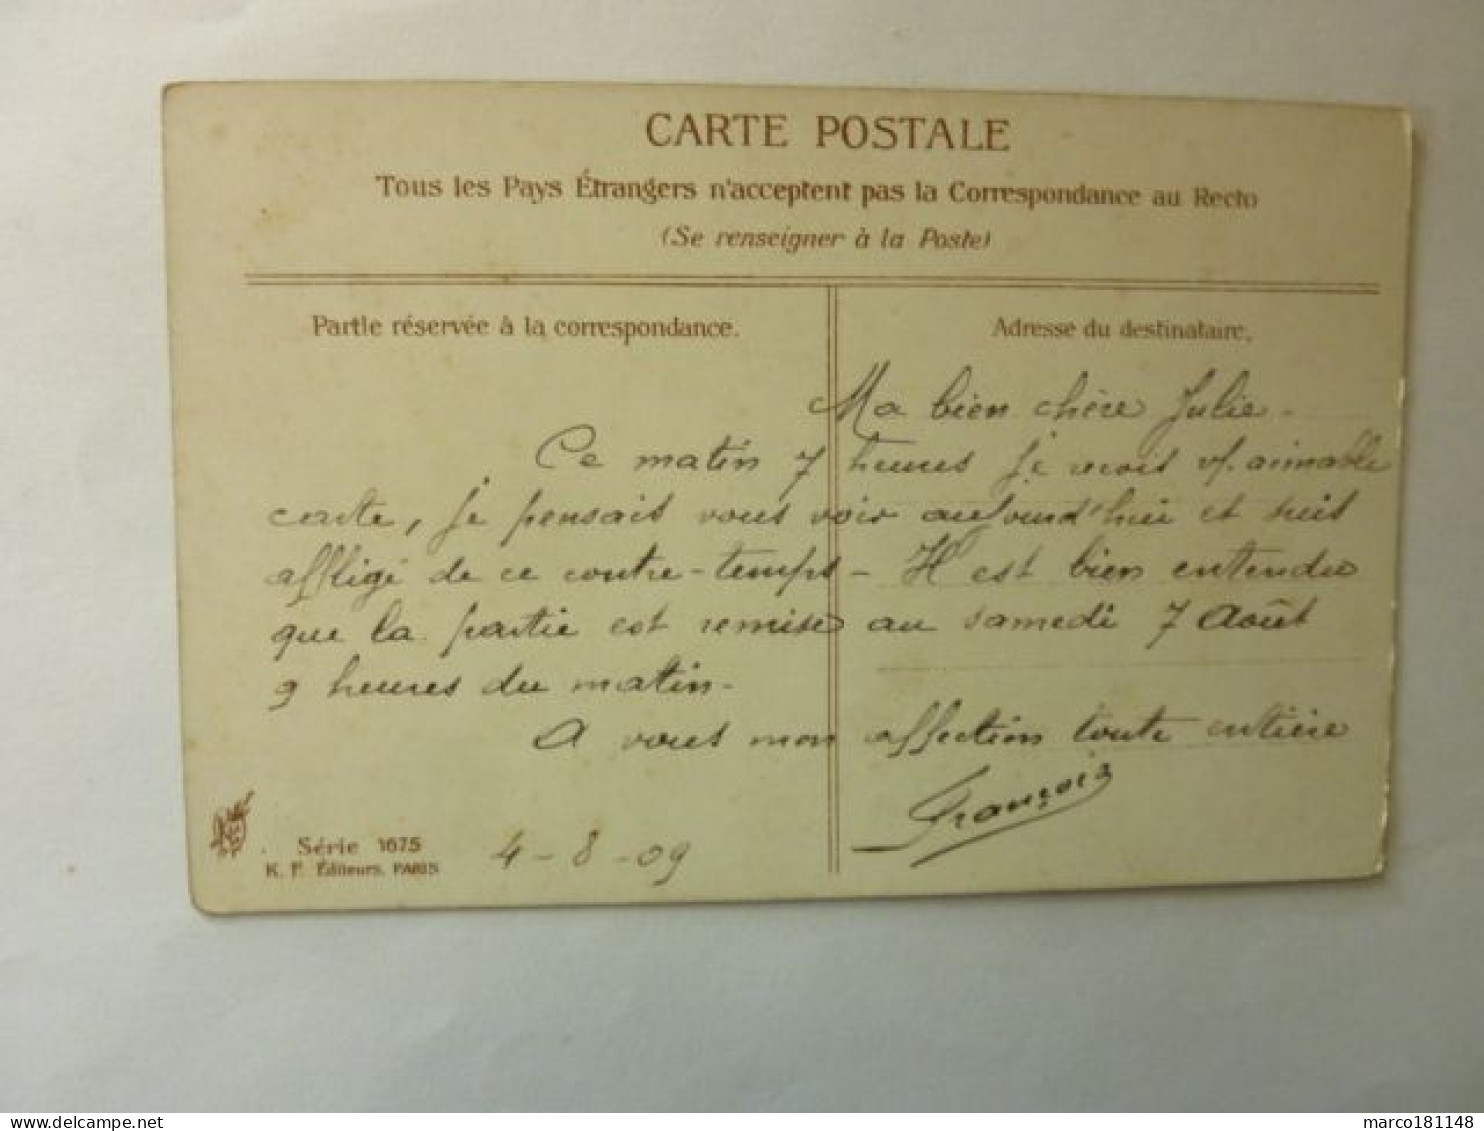 CARTE POSTALE
Tous les Pays Étrangers n'acceptent pas la Correspondance au Recto
(Se renseigner à la Poste)
Partie réservée à la correspondance.
Adresse du destinataire.
Ma bien chère Julie -
Ce matin 7 heures je reçois v/. aimable
carte, je pensais vous voir aujourd'hui et suis
affligé de ce contre-temps - Il est bien entendu
que la partie est remise au samedi 7 Août
9 heures du matin -
A vous mon affection toute entière
François
Série 1675
K. F. Éditeurs, PARIS
4-8-09
marco181148